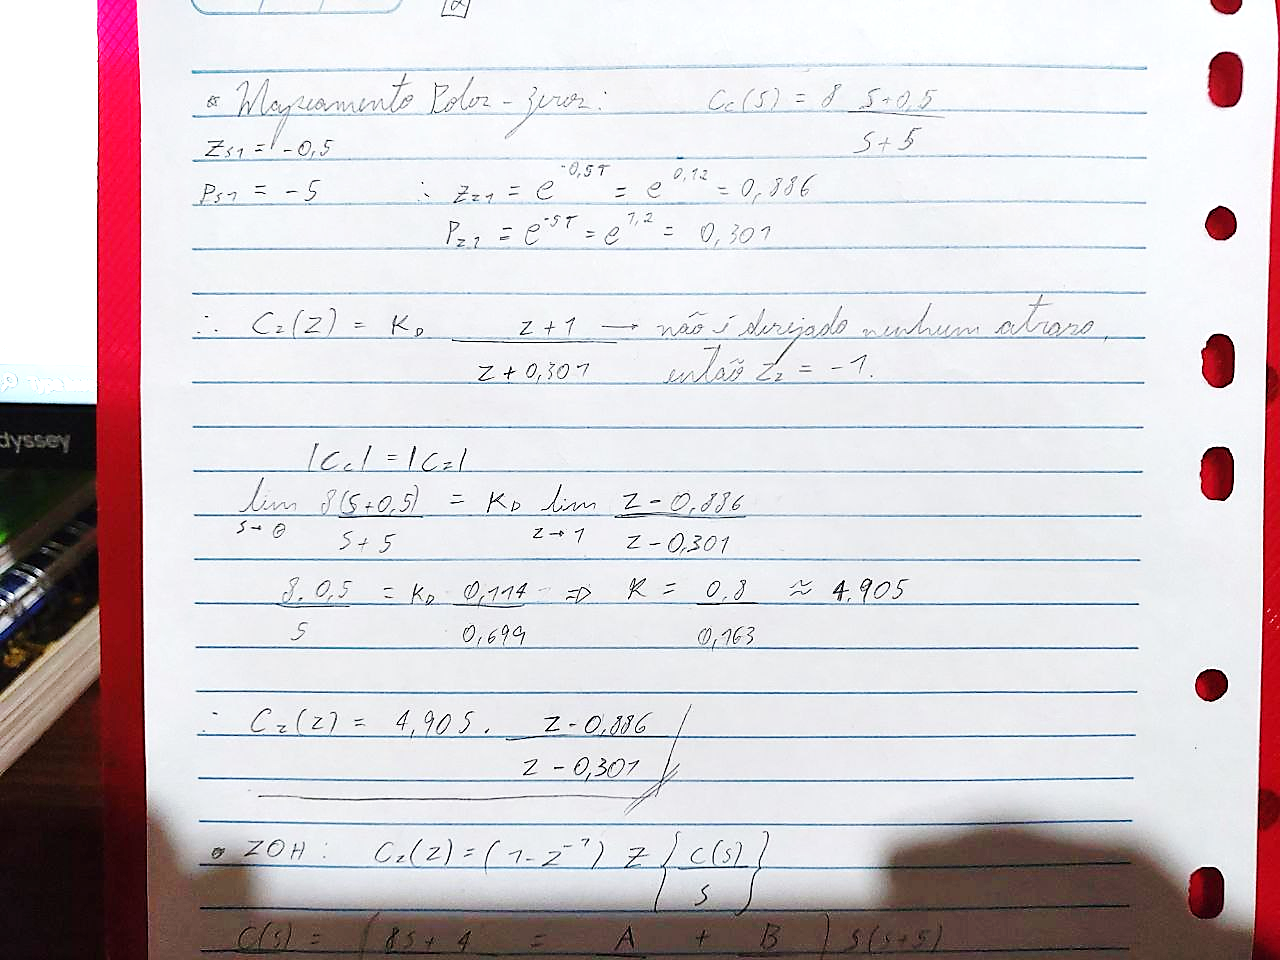 * Mapeamento Polos-Zeros: Cc(s) = 8 (s+0,5)/(s+5)
Zs1 = -0,5
Ps1 = -5 ∴ Zz1 = e^-0,5T = e^0,12 = 0,886
Pz1 = e^-5T = e^1,2 = 0,301
∴ Cz(z) = KD (z+1)/(z+0,301) → não é desejado nenhum atraso,
então Zz = -1.
|Cc| = |Cz|
lim s→0 8(s+0,5)/(s+5) = KD lim z→1 (z-0,886)/(z-0,301)
8.0,5/5 = KD 0,114/0,699 ⇒ K = 0,8/0,163 ≈ 4,905
∴ Cz(z) = 4,905 . (z-0,886)/(z-0,301)
* ZOH: Cz(z) = (1-z^-1) Z{C(s)/s}
C(s) = (8s+4 = A + B) s(s+5)
dyssey